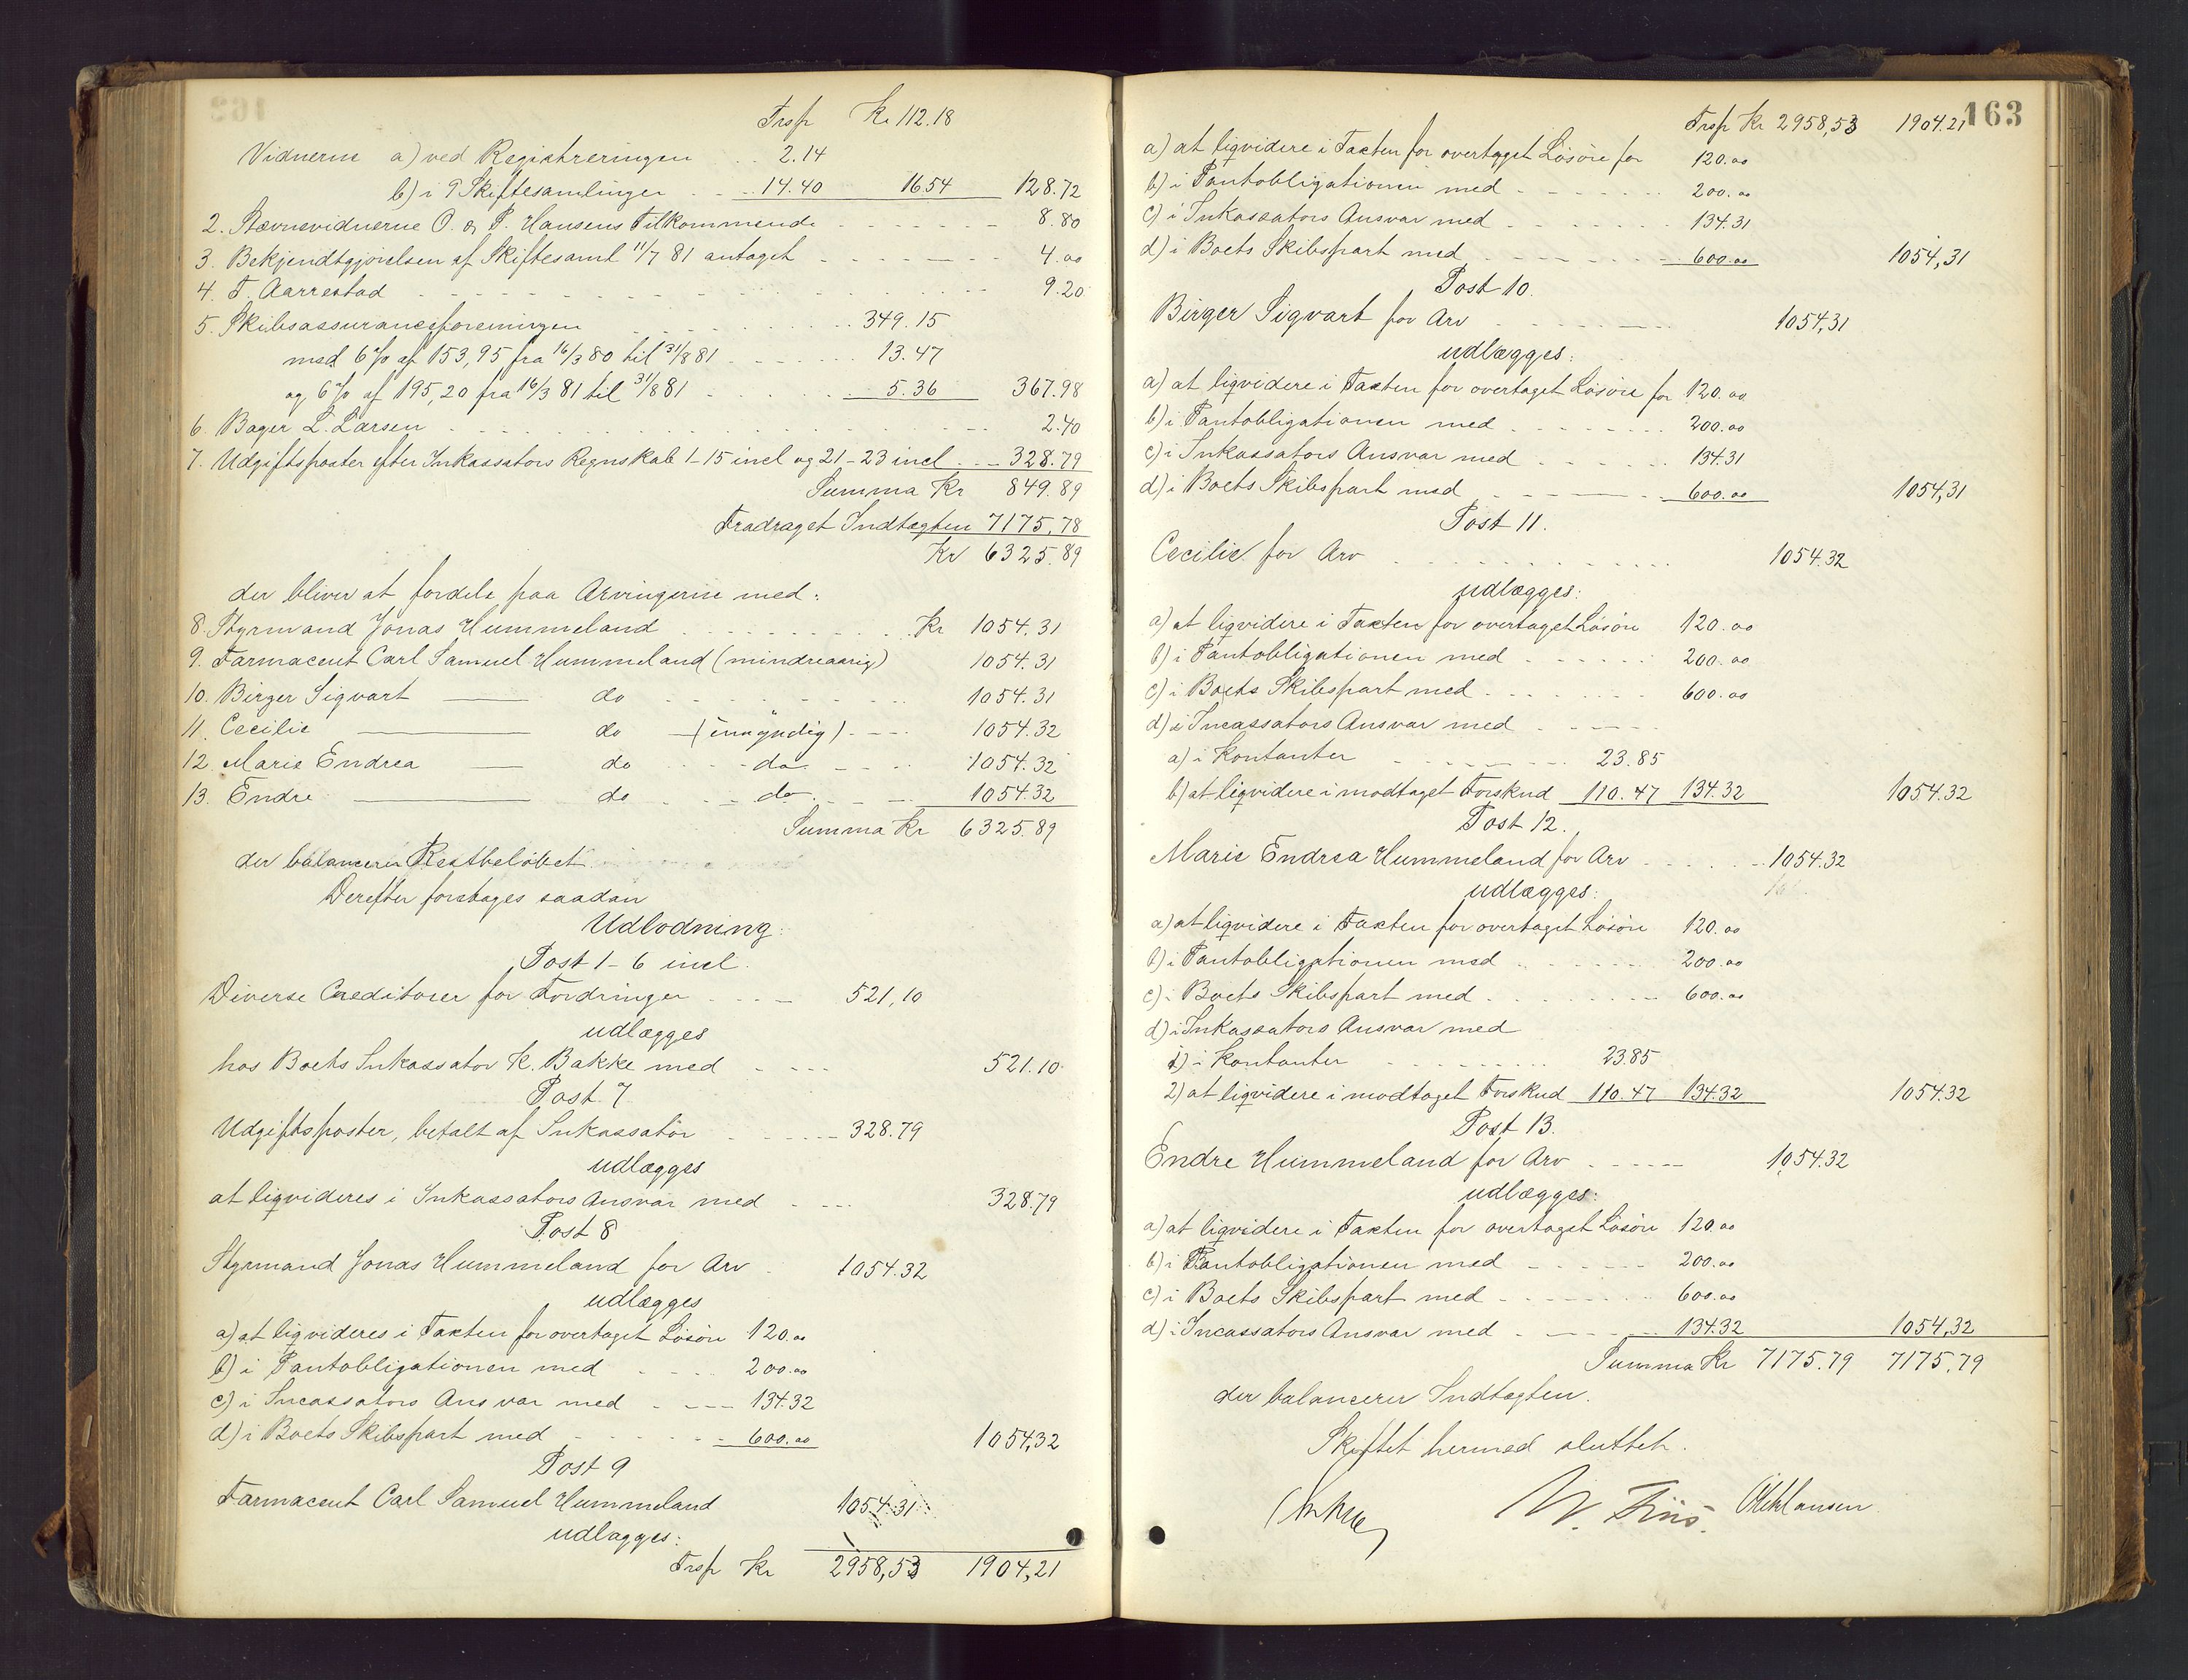 Trsp Kr 112.18
Vidnerne a) ved Registreringen 2.14
b) i 9 Skiftesamlinger 14.40 16 54 128.72
2. Stævnevidnerne O. og P. Hansens Tilkommende 8.80
3. Bekjendtgjørelsen af Skiftesamt 11/7 81 antaget 4.00
4. T. Aarrestad 9.20
5. Skibsassuranceforeningen 349.15
med 6% af 153,95 fra 16/3 80 til 31/8 81 13.47
og 6% af 195,20 fra 16/3 81 til 31/8 81 5.36 367.98
6. Bager L. Larsen 2.40
7. Udgiftsposter efter Inkassators Regnskab 1-15 incl og 21-23 incl 328.79
Summa Kr 849.89
Fradraget Indtægten 7175,78
Kr 6325.89
der bliver at fordele paa Arvingerne med:
8. Styrmand Jonas Hummeland Kr 1054.31
9. Farmaceut Carl Samuel Hummeland (mindreaarig) 1054.31
10. Birger Sigvart do 1054.31
11. Cecilie do (umyndig) 1054.32
12. Marie Endrea do do 1054.32
13. Endre do do 1054.32
Summa Kr 6325.89
der balancerer Restbeløbet
Derefter foretages saadan
Udlodning:
Post 1-6 incl.
Diverse Creditorer for Fordringer 521,10
udlægges
hos Boets Inkassator K. Bakke med 521.10
Post 7
Udgiftsposter, betalt af Inkassator 328.79
udlægges
at liqvideres i Inkassators Ansvar med 328.79
Post 8
Styrmand Jonas Hummeland for Arv 1054.32
udlægges
a) at liqvideres i Taxten for overtaget Løsøre 120.00
b) i Pantobligationen med 200.00
c) i Incassators Ansvar med 134.32
d) i Boets Skibspart med 600.00 1054,32
Post 9
Farmaceut Carl Samuel Hummeland 1054.31
udlægges:
Trsp Kr 2958,53 1904,21
163
Trsp Kr 2958,53 1904.21
a) at liqvidere i Taxten for overtaget Løsøre for 120.00
b) i Pantobligationen med 200.00
c) i Inkassators Ansvar med 134.31
d) i Boets Skibspart med 600.00 1054,31
Post 10.
Birger Sigvart for Arv 1054,31
udlægges:
a) at liqvidere i Taxten for overtaget Løsøre for 120.00
b) i Pantobligationen med 200.00
c) i Inkassators Ansvar med 134.31
d) i Boets Skibspart med 600.00 1054,31
Post 11.
Cecilie for Arv 1054.32
udlægges:
a) at liqvidere i Taxten for overtaget Løsøre 120.00
b) i Pantobligationen med 200.00
c) i Boets Skibspart med 600.00
d) i Incassators Ansvar med
a) i Kontanter 23.85
b) at liqvidere i modtaget Forskud 110.47 134.32 1054.32
Post 12.
Marie Endrea Hummeland for Arv 1054.32
udlægges:
a) at liqvidere i Taxten for overtaget Løsøre 120.00
b) i Pantobligationen med 200.00
c) i Boets Skibspart med 600.00
d) i Inkassators Ansvar med
1) i Kontanter 23.85
2) at liqvidere i modtaget Forskud 110.47 134.32 1054.32
Post 13.
Endre Hummeland for Arv 1054.32
udlægges:
a) at liqvidere i Taxten for overtaget Løsøre 120.00
b) i Pantobligationen med 200.00
c) i Boets Skibspart med 600.00
d) i Incassators Ansvar med 134.32 1054,32
Summa Kr 7175.79 7175.79
der balancerer Indtægten.
Skiftet hermed sluttet.